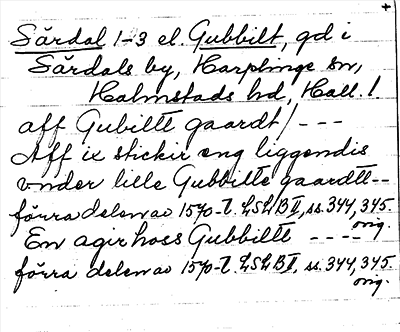 +
Särdal 1-3 el. Gubbilt, gd i
Särdals by, Harplinge sn,
Halmstads hd, Hall. l.
aff Gubiltt gaardt / ---
Aff ix stickir eng liggendis
vnder lille Gubbiltt gaardtt --
förra delen av 1570-t. LSLB II, ss. 344, 345.
orig.
En agir hoss Gubbiltt ----
förra delen av 1570-t. LSLB II, ss. 344, 345.
orig.